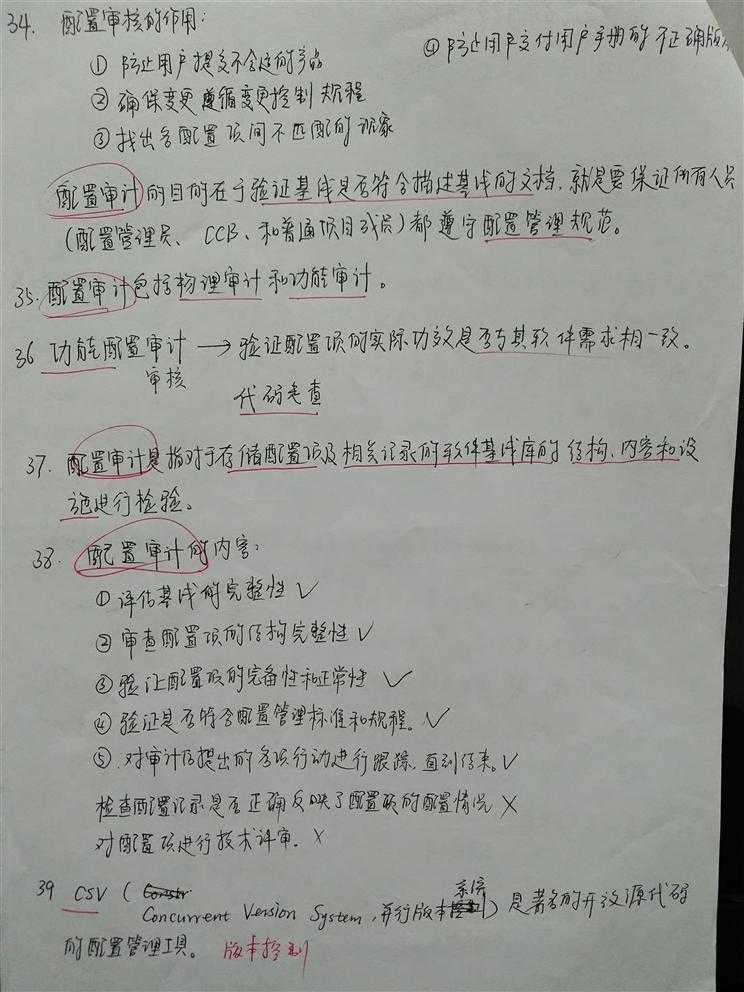 34. 配置审核的作用：
① 防止用户提交不合适的产品
④ 防止用户交付用户手册的不正确版
② 确保变更遵循变更控制规程
③ 找出各配置项间不匹配的现象
配置审计的目的在于验证基线是否符合描述基线的文档，就是要保证所有人员
(配置管理员、CCB、和普通项目成员)都遵守配置管理规范。
35. 配置审计包括物理审计和功能审计。
36 功能配置审计 → 验证配置项的实际功效是否与其软件需求相一致。
审核
代码走查
37. 配置审计是指对于存储配置项及相关记录的软件基线库的结构、内容和设
施进行检验。
38. 配置审计的内容：
① 评估基线的完整性 ✓
② 审查配置项的结构完整性 ✓
③ 验证配置项的完备性和正常性 ✓
④ 验证是否符合配置管理标准和规程。✓
⑤. 对审计后提出的各项行动进行跟踪，直到结束。✓
检查配置记录是否正确反映了配置项的配置情况 ✗
对配置项进行技术评审. ✗
39 CSV (
Concurrent Version System, 并行版本系统) 是著名的开放源代码
的配置管理工具。 版本控制